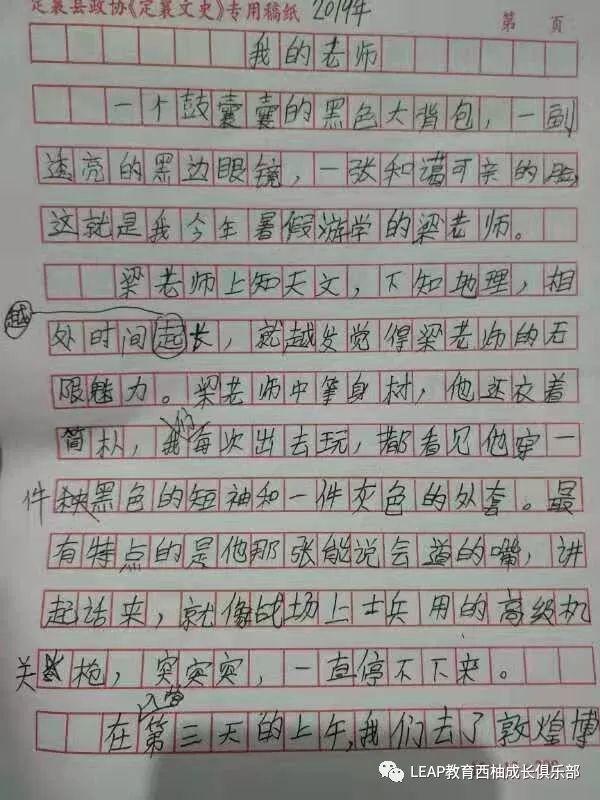 定襄县政协《定襄文史》专用稿纸 2019年 第 页
我的老师
一个鼓囊囊的黑色大背包，一副
透亮的黑边眼镜，一张和蔼可亲的脸，
这就是我今年暑假游学的梁老师。
梁老师上知天文，下知地理，相
处时间越长，就越发觉得梁老师的无
限魅力。梁老师中等身材，他还衣着
简朴，我们每次出去玩，都看见他穿一
件黑色的短袖和一件灰色的外套。最
有特点的是他那张能说会道的嘴，讲
起话来，就像战场上士兵用的高级机
关枪，突突突，一直停不下来。
在入营第三天的上午，我们去了敦煌博
LEAP教育西柚成长俱乐部